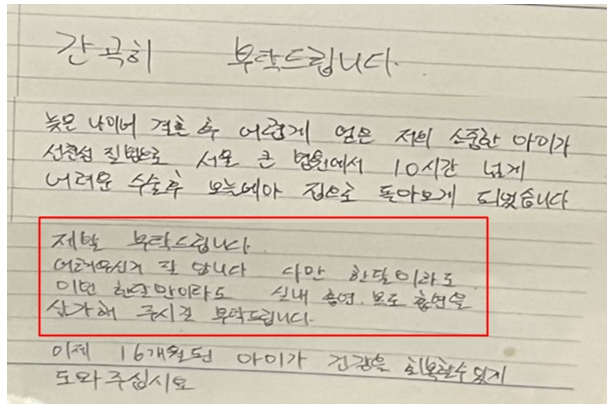 간곡히 부탁드립니다.
늦은 나이에 결혼 후 어렵게 얻은 저희 소중한 아이가
선천성 질병으로 서울 큰 병원에서 10시간 넘게
어려운 수술후 오늘에야 집으로 돌아오게 되었습니다
제발 부탁드립니다.
어려우신거 잘 압니다 다만 한달이라도
이번 한달만이라도 실내 흡연. 보로 흡연을
삼가해 주시길 부탁드립니다.
이제 16개월된 아이가 건강을 회복할수있게
도와주십시요